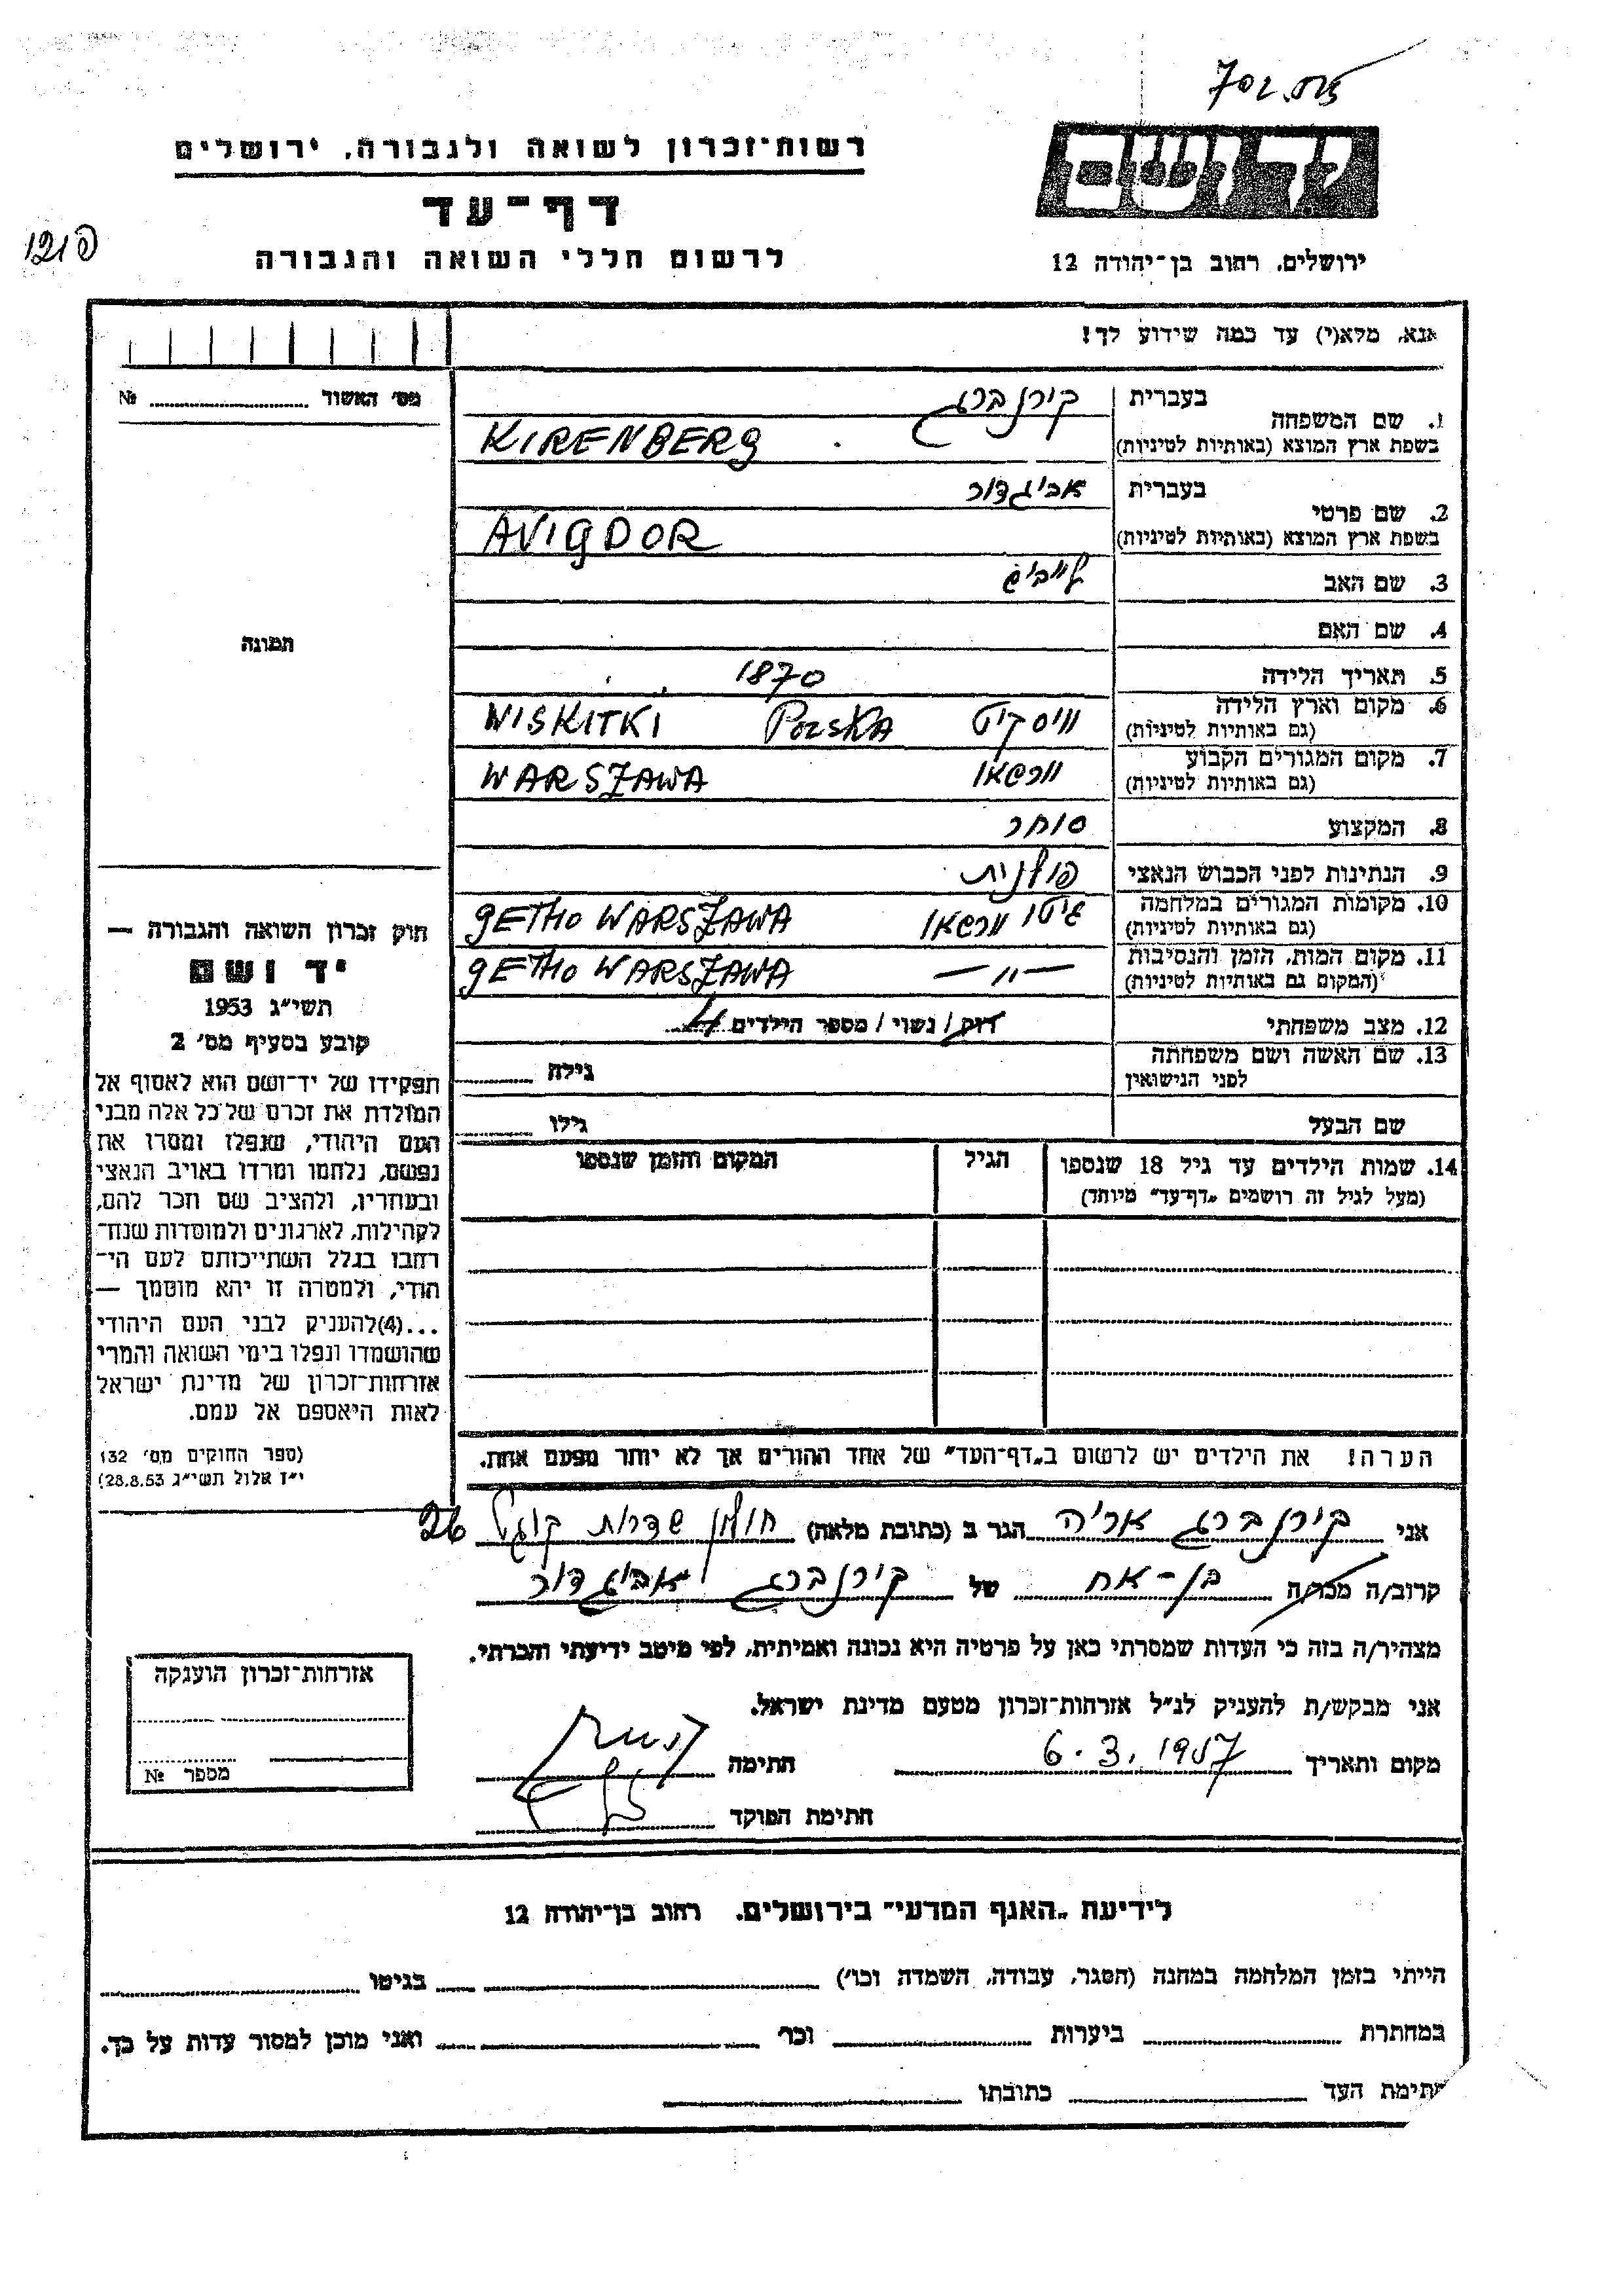 רשות־זכרון לשואה ולגבורה, ירושלים
דף־עד
לרשום חללי השואה והגבורה
יד ושם
ירושלים, רחוב בן־יהודה 12
אנא, מלא(י) עד כמה שידוע לך!
מס׳ האשור № 
1. שם המשפחה
בעברית קירנברג
בשפת ארץ המוצא (באותיות לטיניות) KIRENBERG
2. שם פרטי
בעברית אביגדור
בשפת ארץ המוצא (באותיות לטיניות) AVIGDOR
3. שם האב לייביש
4. שם האם
5. תאריך הלידה 1870
6. מקום וארץ הלידה
(גם באותיות לטיניות) וויסקיט POLSKA WISKITKI
7. מקום המגורים הקבוע
(גם באותיות לטיניות) וורשאו WARSZAWA
8. המקצוע סוחר
9. הנתינות לפני הכבוש הנאצי פולנית
10. מקומות המגורים במלחמה
(גם באותיות לטיניות) גיטו וורשאו GETHO WARSZAWA
11. מקום המות, הזמן והנסיבות
(המקום גם באותיות לטיניות) —״— GETHO WARSZAWA
12. מצב משפחתי רוק / נשוי / מספר הילדים 4
13. שם האשה ושם משפחתה
לפני הנישואין
גילה
שם הבעל
גילו
14. שמות הילדים עד גיל 18 שנספו
(מעל לגיל זה רושמים „דף־עד״ מיוחד)
הגיל
המקום והזמן שנספו
הערה! את הילדים יש לרשום ב„דף־העד״ של אחד ההורים אך לא יותר מפעם אחת.
תמונה
חוק זכרון השואה והגבורה —
יד ושם
תשי״ג 1953
קובע בסעיף מס׳ 2
תפקידו של יד־ושם הוא לאסוף אל
המולדת את זכרם של כל אלה מבני
העם היהודי, שנפלו ומסרו את
נפשם, נלחמו ומרדו באויב הנאצי
ובעוזריו, ולהציב שם וזכר להם,
לקהילות, לארגונים ולמוסדות שנח־
רבו בגלל השתייכותם לעם הי־
הודי, ולמטרה זו יהא מוסמך —
...(4)להעניק לבני העם היהודי
שהושמדו ונפלו בימי השואה והמרי
אזרחות־זכרון של מדינת ישראל
לאות היאספם אל עמם.
(ספר החוקים מס׳ 132
י״ז אלול תשי״ג 28.8.53)
אני קירנברג אריה הגר ב (כתובת מלאה) חולון שדרות קוגל 26
קרוב/ה מכר/ה בן-אח של קירנברג אביגדור
מצהיר/ה בזה כי העדות שמסרתי כאן על פרטיה היא נכונה ואמיתית, לפי מיטב ידיעתי והכרתי.
אני מבקש/ת להעניק לנ״ל אזרחות־זכרון מטעם מדינת ישראל.
מקום ותאריך 6.3.1957 חתימה
חתימת הפוקד
אזרחות־זכרון הוענקה
מספר №
לידיעת „האגף המדעי״ בירושלים, רחוב בן־יהודה 12
הייתי בזמן המלחמה במחנה (הסגר, עבודה, השמדה וכו׳) בגיטו
במחתרת ביערות וכו׳ ואני מוכן למסור עדות על כך.
חתימת העד כתובתו